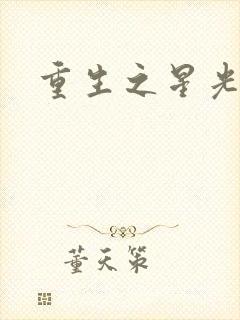 重生之星光
董天策